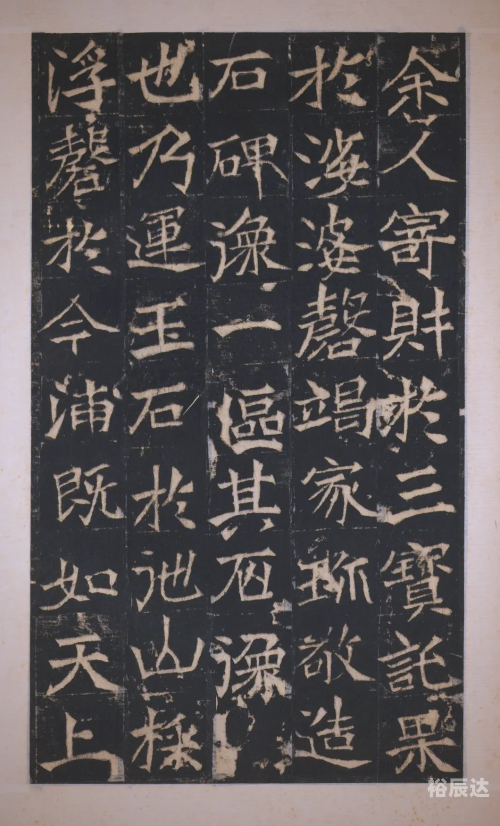 余人寄財於三寶託果
於娑婆罄竭家珎敬造
石碑像一區其石像
也乃運玉石於他山採
浮磬於今浦既如天上
裕辰达